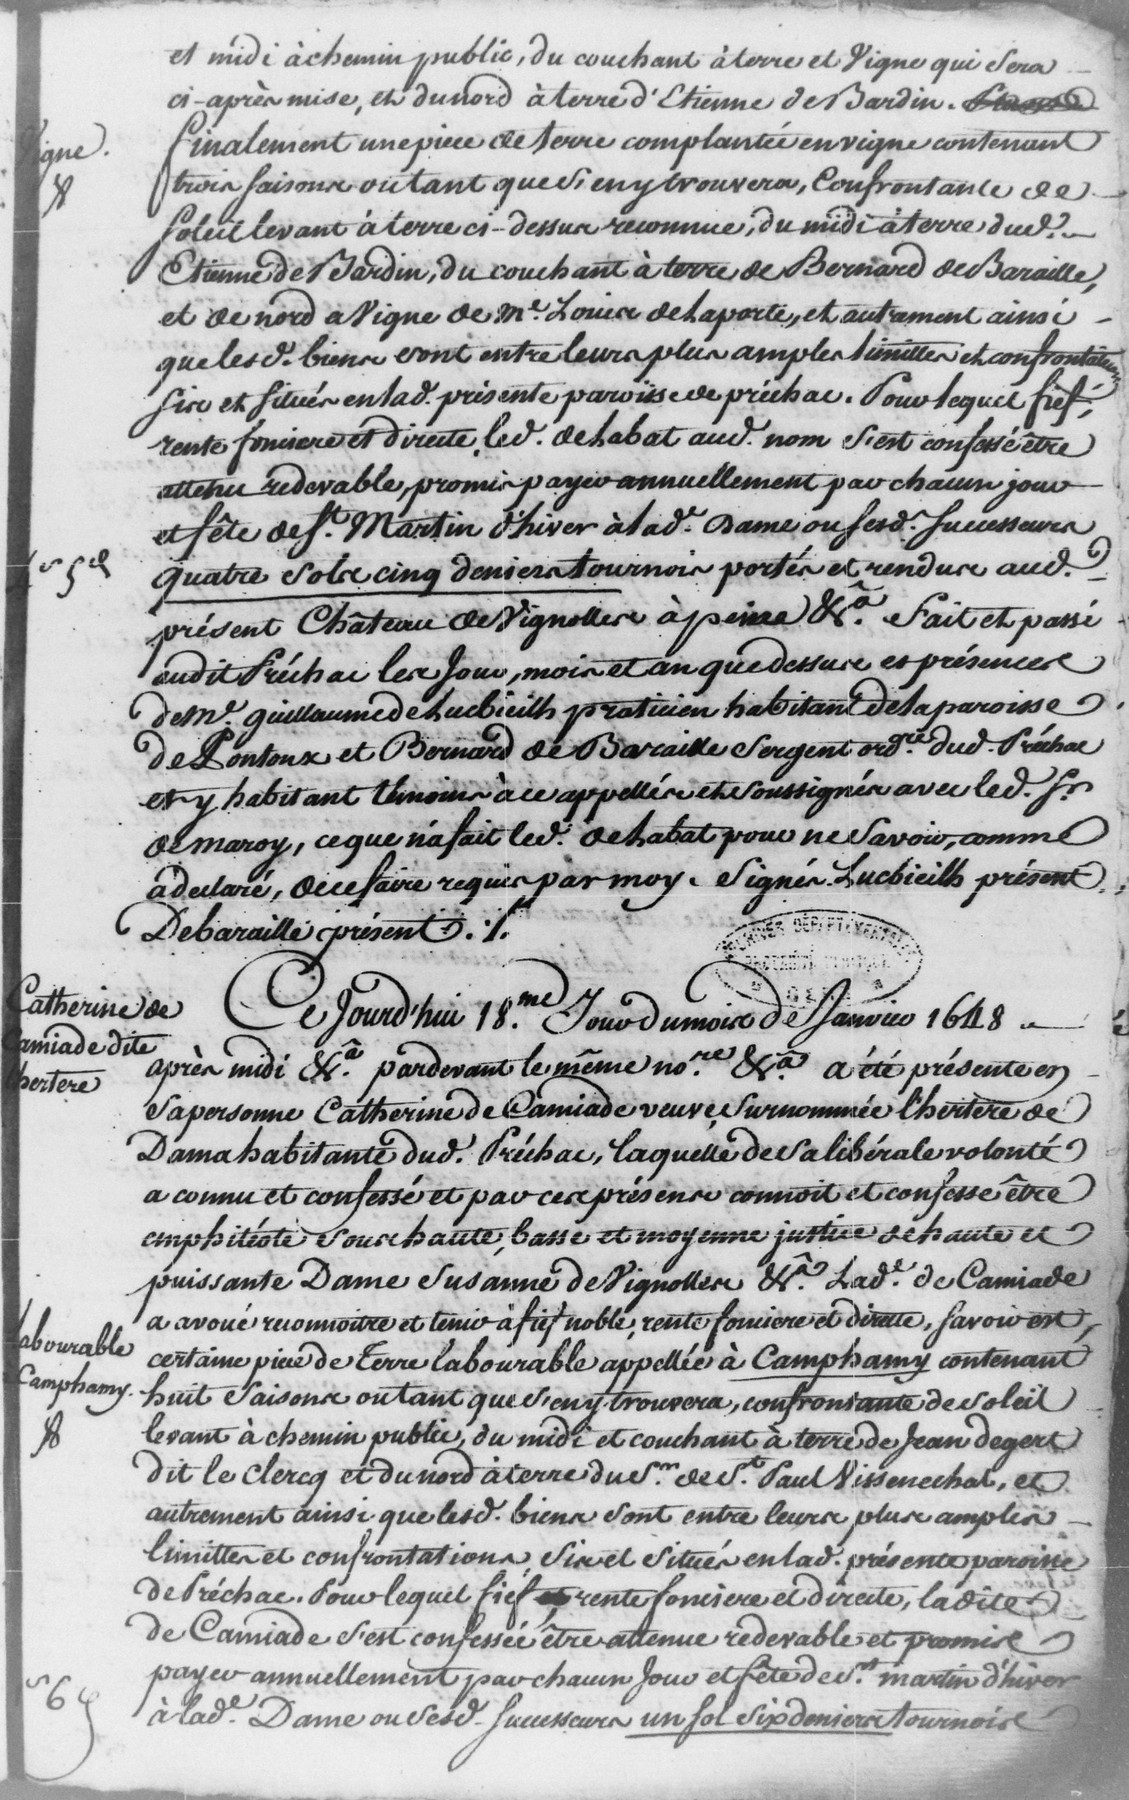 et midi à chemin public, du couchant à terre et Vigne qui sera
ci-après mise, et du nord à terre d'Etienne de Bardin.
Vigne.
finalement une piece de terre complantée en vigne contenant
trois saisons ou tant que s'en y trouvera, Confrontante de
Soleil levant à terre ci-dessus reconnue, du midi à terre dud.
Etienne de Bardin, du couchant à terre de Bernard de Baraille,
et de nord a Vigne de Me. Louis de Laporte, et autrement ainsi
que lesd. biens sont entre leurs plus amples limittes et confrontations
sis et situés en lad. présente paroisse de préchac. Pour lequel fief,
rente fonciere et directe, led. de Labat aud. nom s'est confessé être
attenu redevable, promis payer annuellement par chacun jour
et fête de St. Martin d'hiver à lad. Dame ou sesd. successeurs
4s 5d
quatre sols cinq deniers tournois portés et rendus aud.
présent Château de Vignolles à peine &a. Fait et passé
audit Préchac les Jour, mois et an que dessus es présences
de Me. guillaume de Lucbieilh praticien habitant de la paroisse
de Pontoux et Bernard de Baraille Sergent ordre. dud. Préchac
et y habitant témoins à ce appellés et soussignés avec led. Sr.
de maroy, ce que n'a fait led. de Labat pour ne savoir, comme
a déclaré, de ce faire requis par moy. Signés Lucbieilh présent
Debaraille présent ./.
ARCHIVES DÉPARTEMENTALES
Catherine de
Camiade dite
lhertere
Ce Jourd'hui 18.me Jour du mois de Janvier 1648
après midi &a. pardevant le même no.re &a. a été présente en
sa personne Catherine de Camiade veuve, surnommée l'hertere de
Dama habitante dud. Préchac, laquelle de sa libérale volonté
a connu et confessé et par ces présens connoit et confesse être
emphitéote sous haute, basse et moyenne justice de haute et
puissante Dame Susanne de Vignolles &a. Lade. de Camiade
a avoué reconnoitre et tenir à fief noble, rente fonciere et directe, savoir est,
labourable
Camphamy.
certaine piece de Terre labourable appellée à Camphamy contenant
huit Saisons ou tant que s'en y trouvera, confrontante de soleil
levant à chemin public, du midi et couchant à terre de Jean degert
dit le Clercq et du nord à terre du Sr. de St. Paul Vissenechal, et
autrement ainsi que lesd. biens sont entre leurs plus amples
limittes et confrontations, sis et situés en lad. présente paroisse
de Préchac. Pour lequel fief rente fonciere et directe, ladite
de Camiade s'est confessée être attenue redevable et promise
payer annuellement par chacun Jour et fête de St. martin d'hiver
1s 6d
à lade. Dame ou sesd. successeurs un sol six deniers tournois